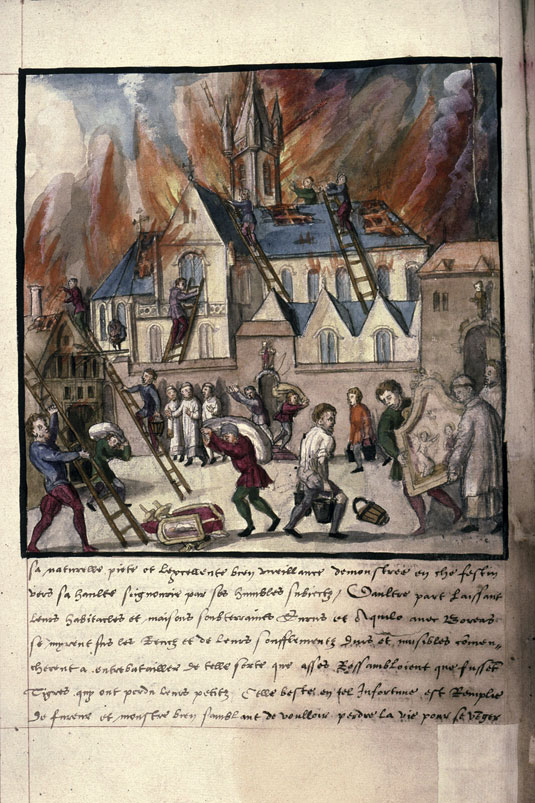 sa naturelle piete et lexcellente bien vueillance demonstrée en che festin
vers sa haulte seignourie par ses humbles subiectz / Daultre part Laissant
leurs habitacles et maisons soubterraines Eurus et Aquilo auec Boreas
se myrent sus les Rencz et de leurs soufflementz durs et nuisibles comen-
cherent a entrebatailler de telle sorte que asses Ressambloient que fussent
Tigres quy ont perdu leurs petitz / Celle beste en tel Infortune est Remplie
de fureur et monstre bien samblant de voulloir perdre la vie pour se venger